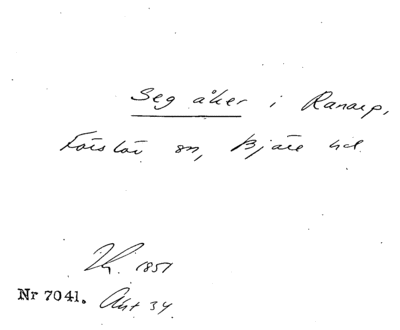 Seg åker i Ranarp,
Förslöv sn, Bjäre hd.
1851
Nr 7041. Akt 34.